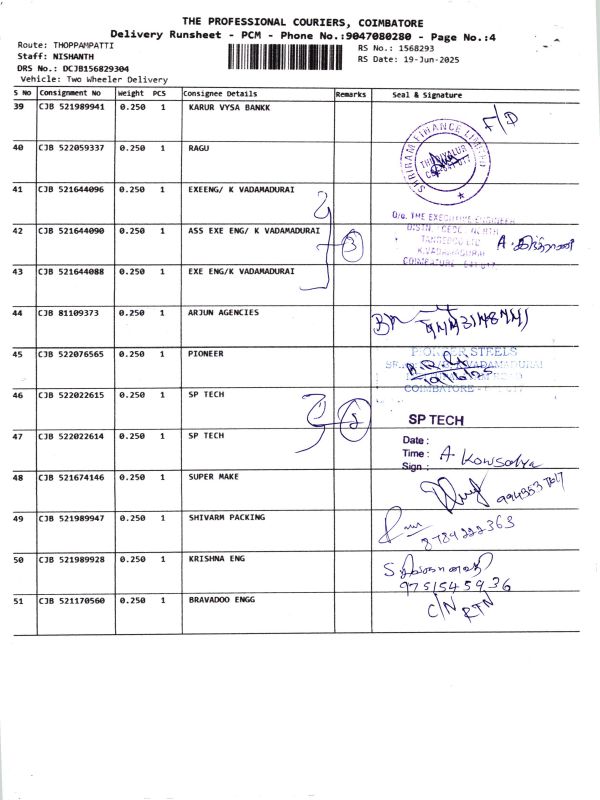 THE PROFESSIONAL COURIERS, COIMBATORE
Delivery Runsheet - PCM - Phone No.:9047080280 - Page No.:4
Route: THOPPAMPATTI
RS No.: 1568293
Staff: NISHANTH
RS Date: 19-Jun-2025
DRS No.: DCJB156829304
Vehicle: Two Wheeler Delivery
S No Consignment No Weight PCS Consignee Details Remarks Seal & Signature
39 CJB 521989941 0.250 1 KARUR VYSA BANKK F/D
SHRIRAM FINANCE LIMITED
40 CJB 522059337 0.250 1 RAGU
41 CJB 521644096 0.250 1 EXEENG/ K VADAMADURAI
O/o. THE EXECUTIVE ENGINEER
42 CJB 521644090 0.250 1 ASS EXE ENG/ K VADAMADURAI 3
TANGEDCO LTD
K.VADAMADURAI
COIMBATORE - 641 017.
43 CJB 521644088 0.250 1 EXE ENG/K VADAMADURAI
44 CJB 81109373 0.250 1 ARJUN AGENCIES
45 CJB 522076565 0.250 1 PIONEER
PIONEER STEELS
VADAMADURAI
19/6/25
COIMBATORE
46 CJB 522022615 0.250 1 SP TECH
SP TECH
47 CJB 522022614 0.250 1 SP TECH
Date :
Time : A Kowsalya
Sign :
48 CJB 521674146 0.250 1 SUPER MAKE
49 CJB 521989947 0.250 1 SHIVARM PACKING
8789222363
50 CJB 521989928 0.250 1 KRISHNA ENG
9751545936
51 CJB 521170560 0.250 1 BRAVADOO ENGG
C/N RTN